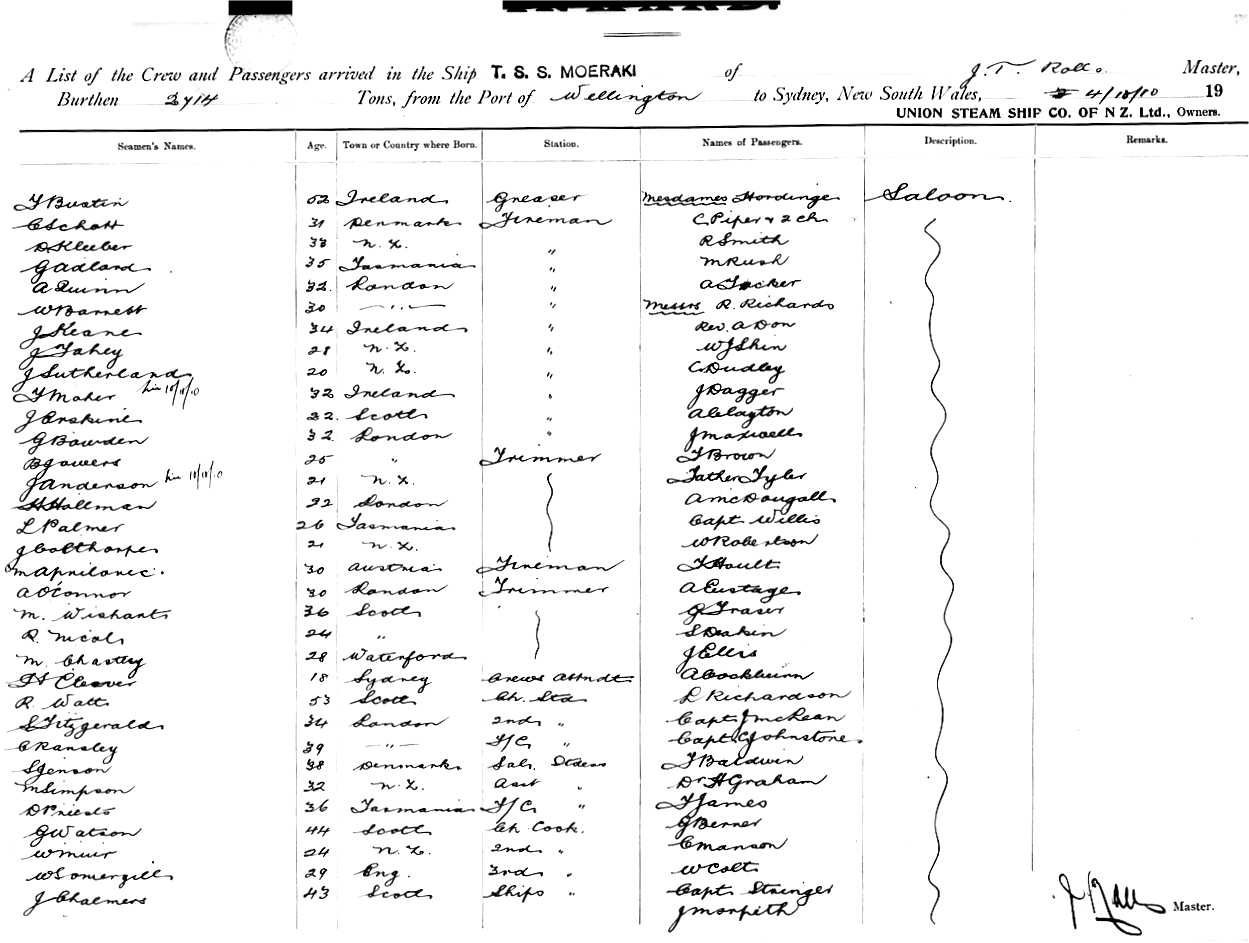 INWARD.
A List of the Crew and Passengers arrived in the Ship T. S. S. MOERAKI of J. T. Rolls Master,
Burthen 2714 Tons, from the Port of Wellington to Sydney, New South Wales, 4/10/10 19
UNION STEAM SHIP CO. OF N Z. Ltd., Owners.
Seamen's Names. Age. Town or Country where Born. Station. Names of Passengers. Description. Remarks.
T Bustin 52 Ireland Greaser Mesdames Hordinge Saloon.
C Schott 31 Denmark Fireman C. Piper & 2 ch
D. Kleeber 33 N. Z. " R Smith
G Adland 35 Tasmania " M Rush
A Quinn 32 London " A Tocker
W Barnett 30 — " — " Messrs R. Richards
J Keane 34 Ireland " Rev. A Don
J Fahey 28 N. Z. " W J Shin
J Sutherland 20 N. Z. " C Dudley
T Maher 10/10/10 32 Ireland " J Dagger
J Erskine 22. Scotl " A Clayton
G Bowden 32 London " J Maxwell
B Gowers 25 " Trimmer T Brown
J Anderson 10/10/10 21 N. Z. Father Tyler
H Hallman 22 London A McDougall
L Palmer 26 Tasmania Capt. Willis
J Colthorpe 21 N. Z. W Robertson
M Aprilovic. 30 Austria Fireman T Hoult
A O'Connor 30 London Trimmer A Eustage
M. Wishart 36 Scotl G Fraser
R. Nicol 24 " S Deakin
M. Chastey 28 Waterford J Ellis
Cleaver 18 Sydney Crews Attndt A Cockburn
R. Watt 53 Scotl Ch. Std L Richardson
S Fitzgerald 34 London 2nd " Capt. J McLean
C Ransley 39 — " — F/C " Capt. C Johnstone.
S Jenson 38 Denmark Sal. Stdess T Baldwin
M Simpson 32 N. Z. Asst " Dr H Graham
D Priest 36 Tasmania F/C " T James
G Watson 44 Scotl Ch Cook. G Berner
W Muir 24 N. Z. 2nd " C Manson
W Somergill 29 Eng. 3rd " W Colt
J Chalmers 43 Scotl Ships " Capt Stringer
J Morpeth
J Rolls Master.